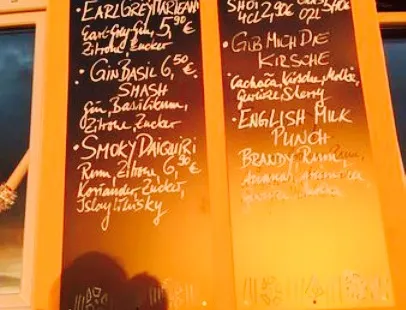 • EARL GREY MARTEANI
Earl-Grey-Gin, 5,90 €
Zitrone, Zucker
• GIN BASIL 6,50 €
SMASH
Gin, Basilikum,
Zitrone, Zucker
• SMOKY DAIQUIRI
Rum, Zitrone, 6,90 €
Koriander, Zucker,
Islay Whisky
SHOT
4cl 2,90€ 0,2L
• GIB MICH DIE
KIRSCHE
Cachaça, Kirsche, Molke,
Gewürze, Sherry
• ENGLISH MILK
PUNCH
BRANDY, Rum